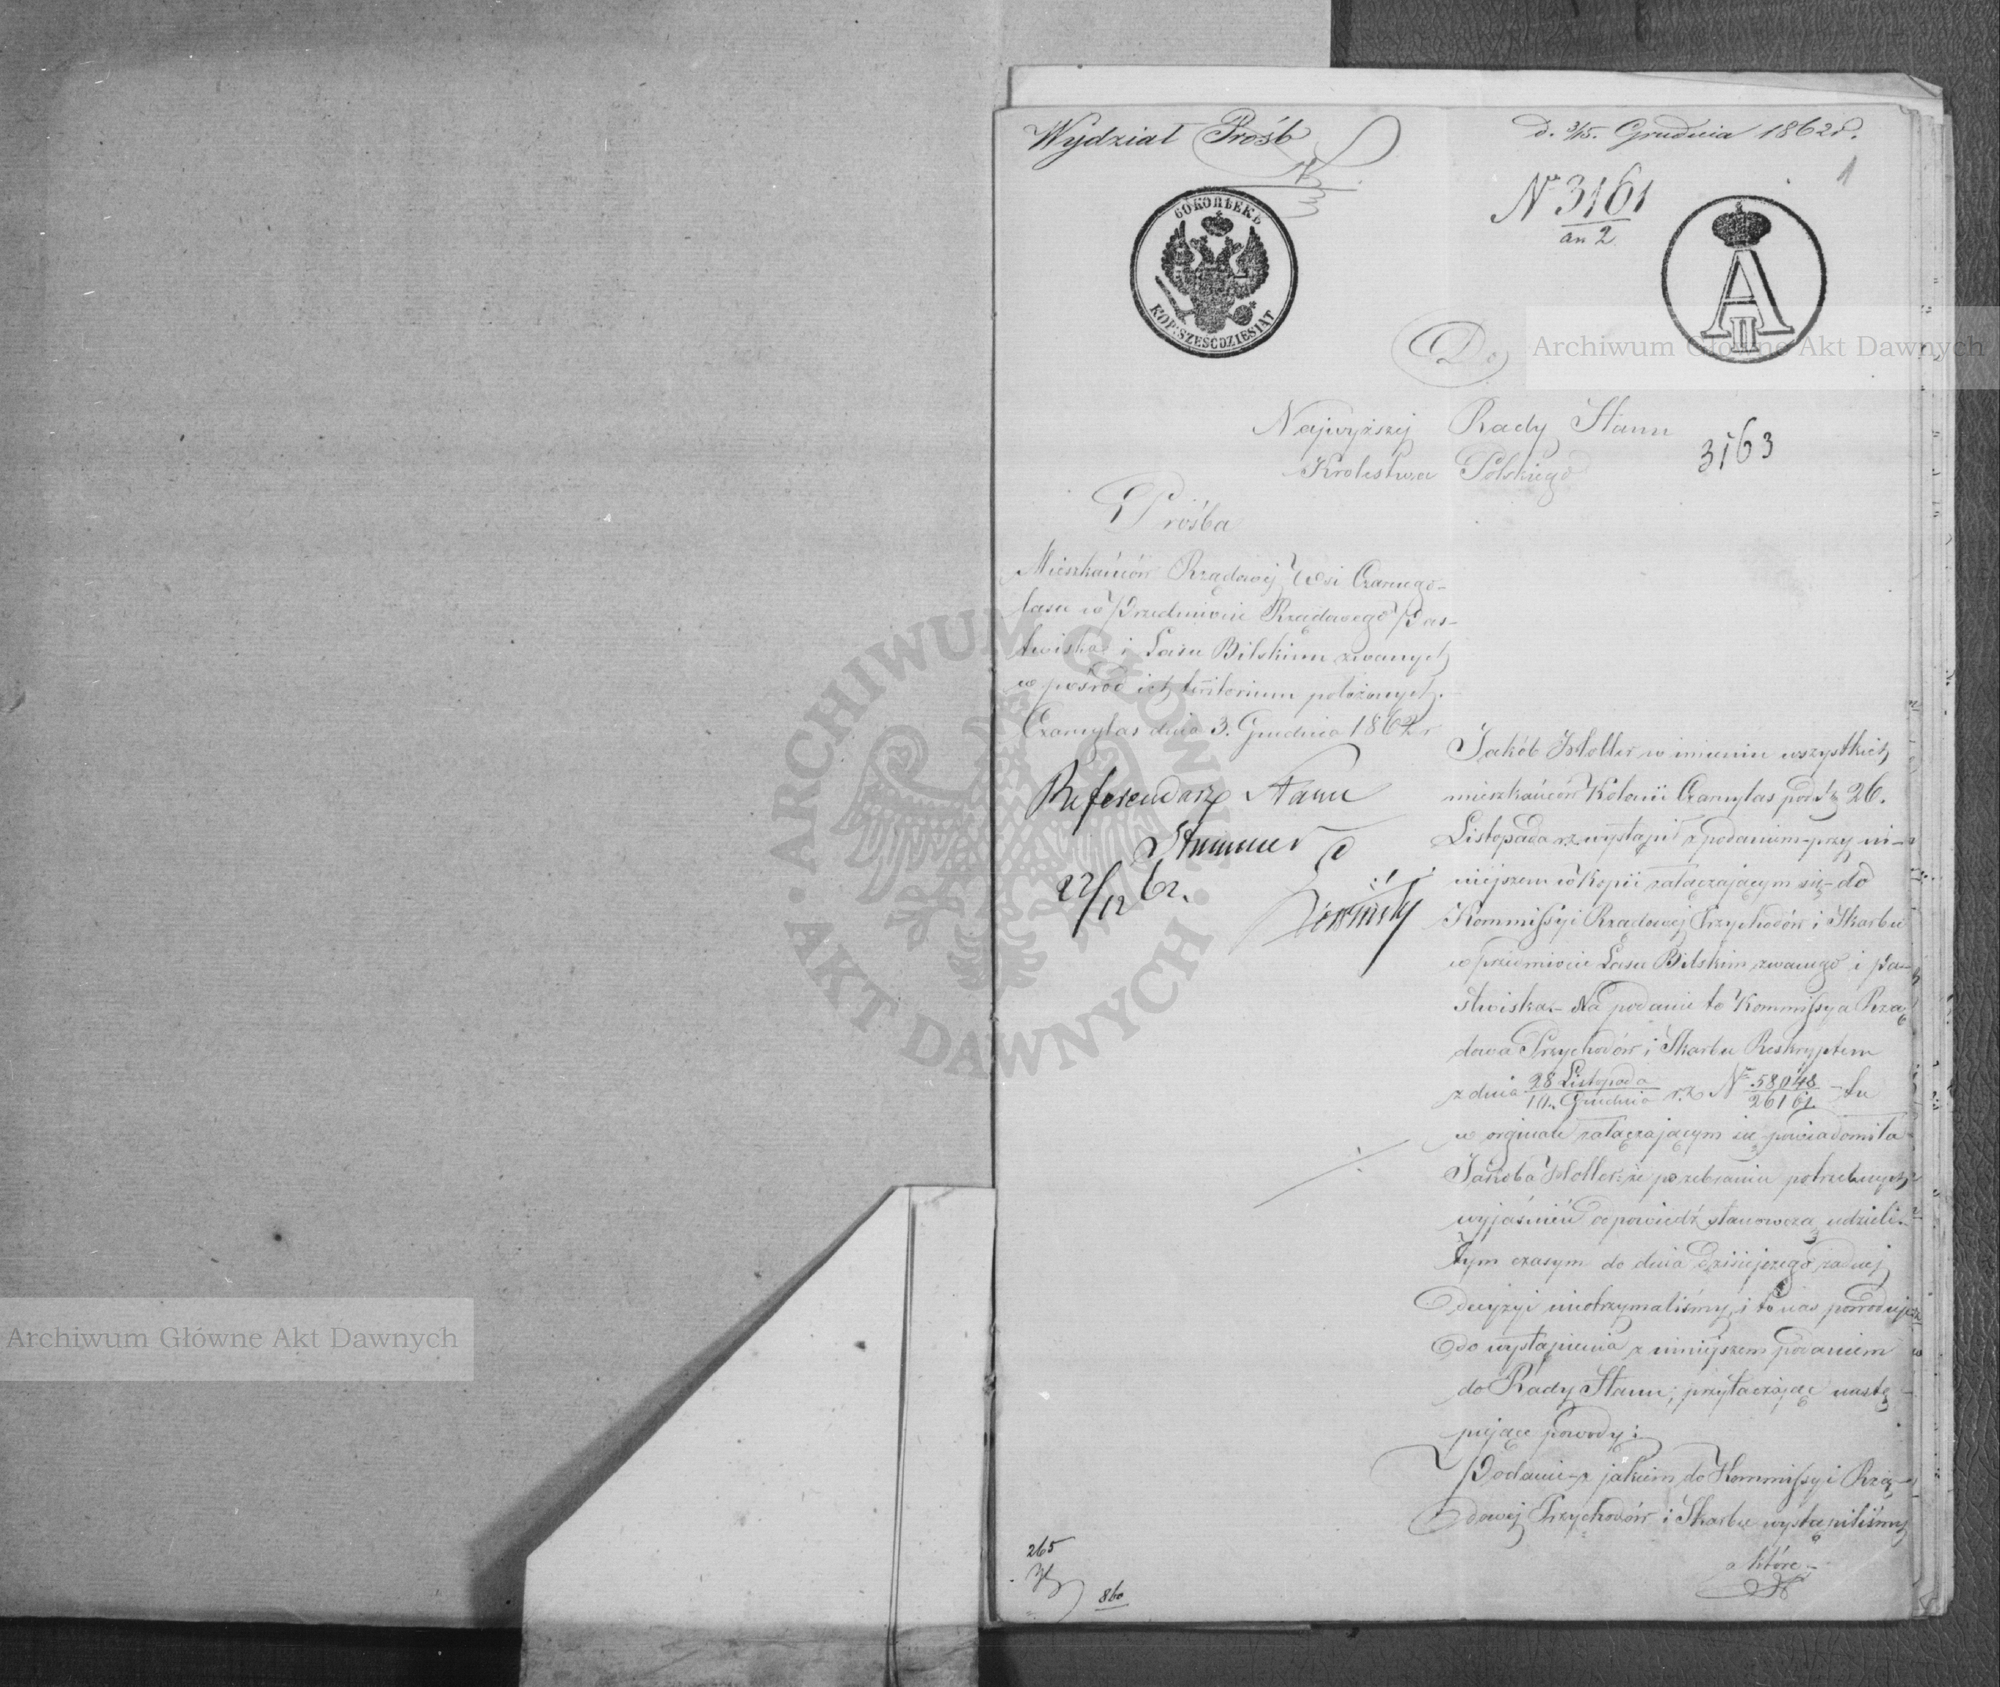 Wydział Próśb
d. 3/15. Grudnia 1862 r.
1
Nr 3161
an 2
60 КОПѢЕКЪ
KOP: SZESCDZIESIAT
A II
Do
Najwyższej Rady Stanu
Krolestwa Polskiego
3163
Prośba
Mieszkańców Rządowej Wsi Czarnego-
lasu w Przedmiocie Rządowego Pas-
twiska i Lasu Bilskim zwanych
w pośród ich territorium położonych.
Czarnylas dnia 3. Grudnia 1862 r
Referendarz Stanu
Stummer
22/12 62.
Jakób Holler w imieniu wszystkich
mieszkańców Kolonii Czarnylas pod d. 26.
Listopada r.z. wystąpił z podaniem przy ni-
niejszem w kopii załączającym się – do
Kommissyi Rządowej Przychodów i Skarbu
w przedmiocie Lasu Bilskim zwanego i pa-
stwiska. – Na podanie to Kommissya Rzą-
dowa Przychodów i Skarbu Reskryptem
z dnia 28 Listopada / 10. Grudnia r.z. Nr 58048 / 26161 – tu
w orginale załączającym się powiadomiła
Jakóba Holler, że po zebraniu potrzebnych
wyjaśnień odpowiedź stanowczą udzieli. –
Tym czasym do dnia dzisiejszego żadnej
Decyzyi nieotrzymaliśmy, i to nas powoduje
do wystąpienia z niniejszem podaniem
do Rady Stanu, przytaczając nastę-
pujące powody:
Podanie z jakiem do Kommissyi Rzą-
dowej Przychodów i Skarbu wystąpiliśmy
a które –
265
860
Archiwum Główne Akt Dawnych
Archiwum Główne Akt Dawnych
ARCHIWUM GŁÓWNE AKT DAWNYCH